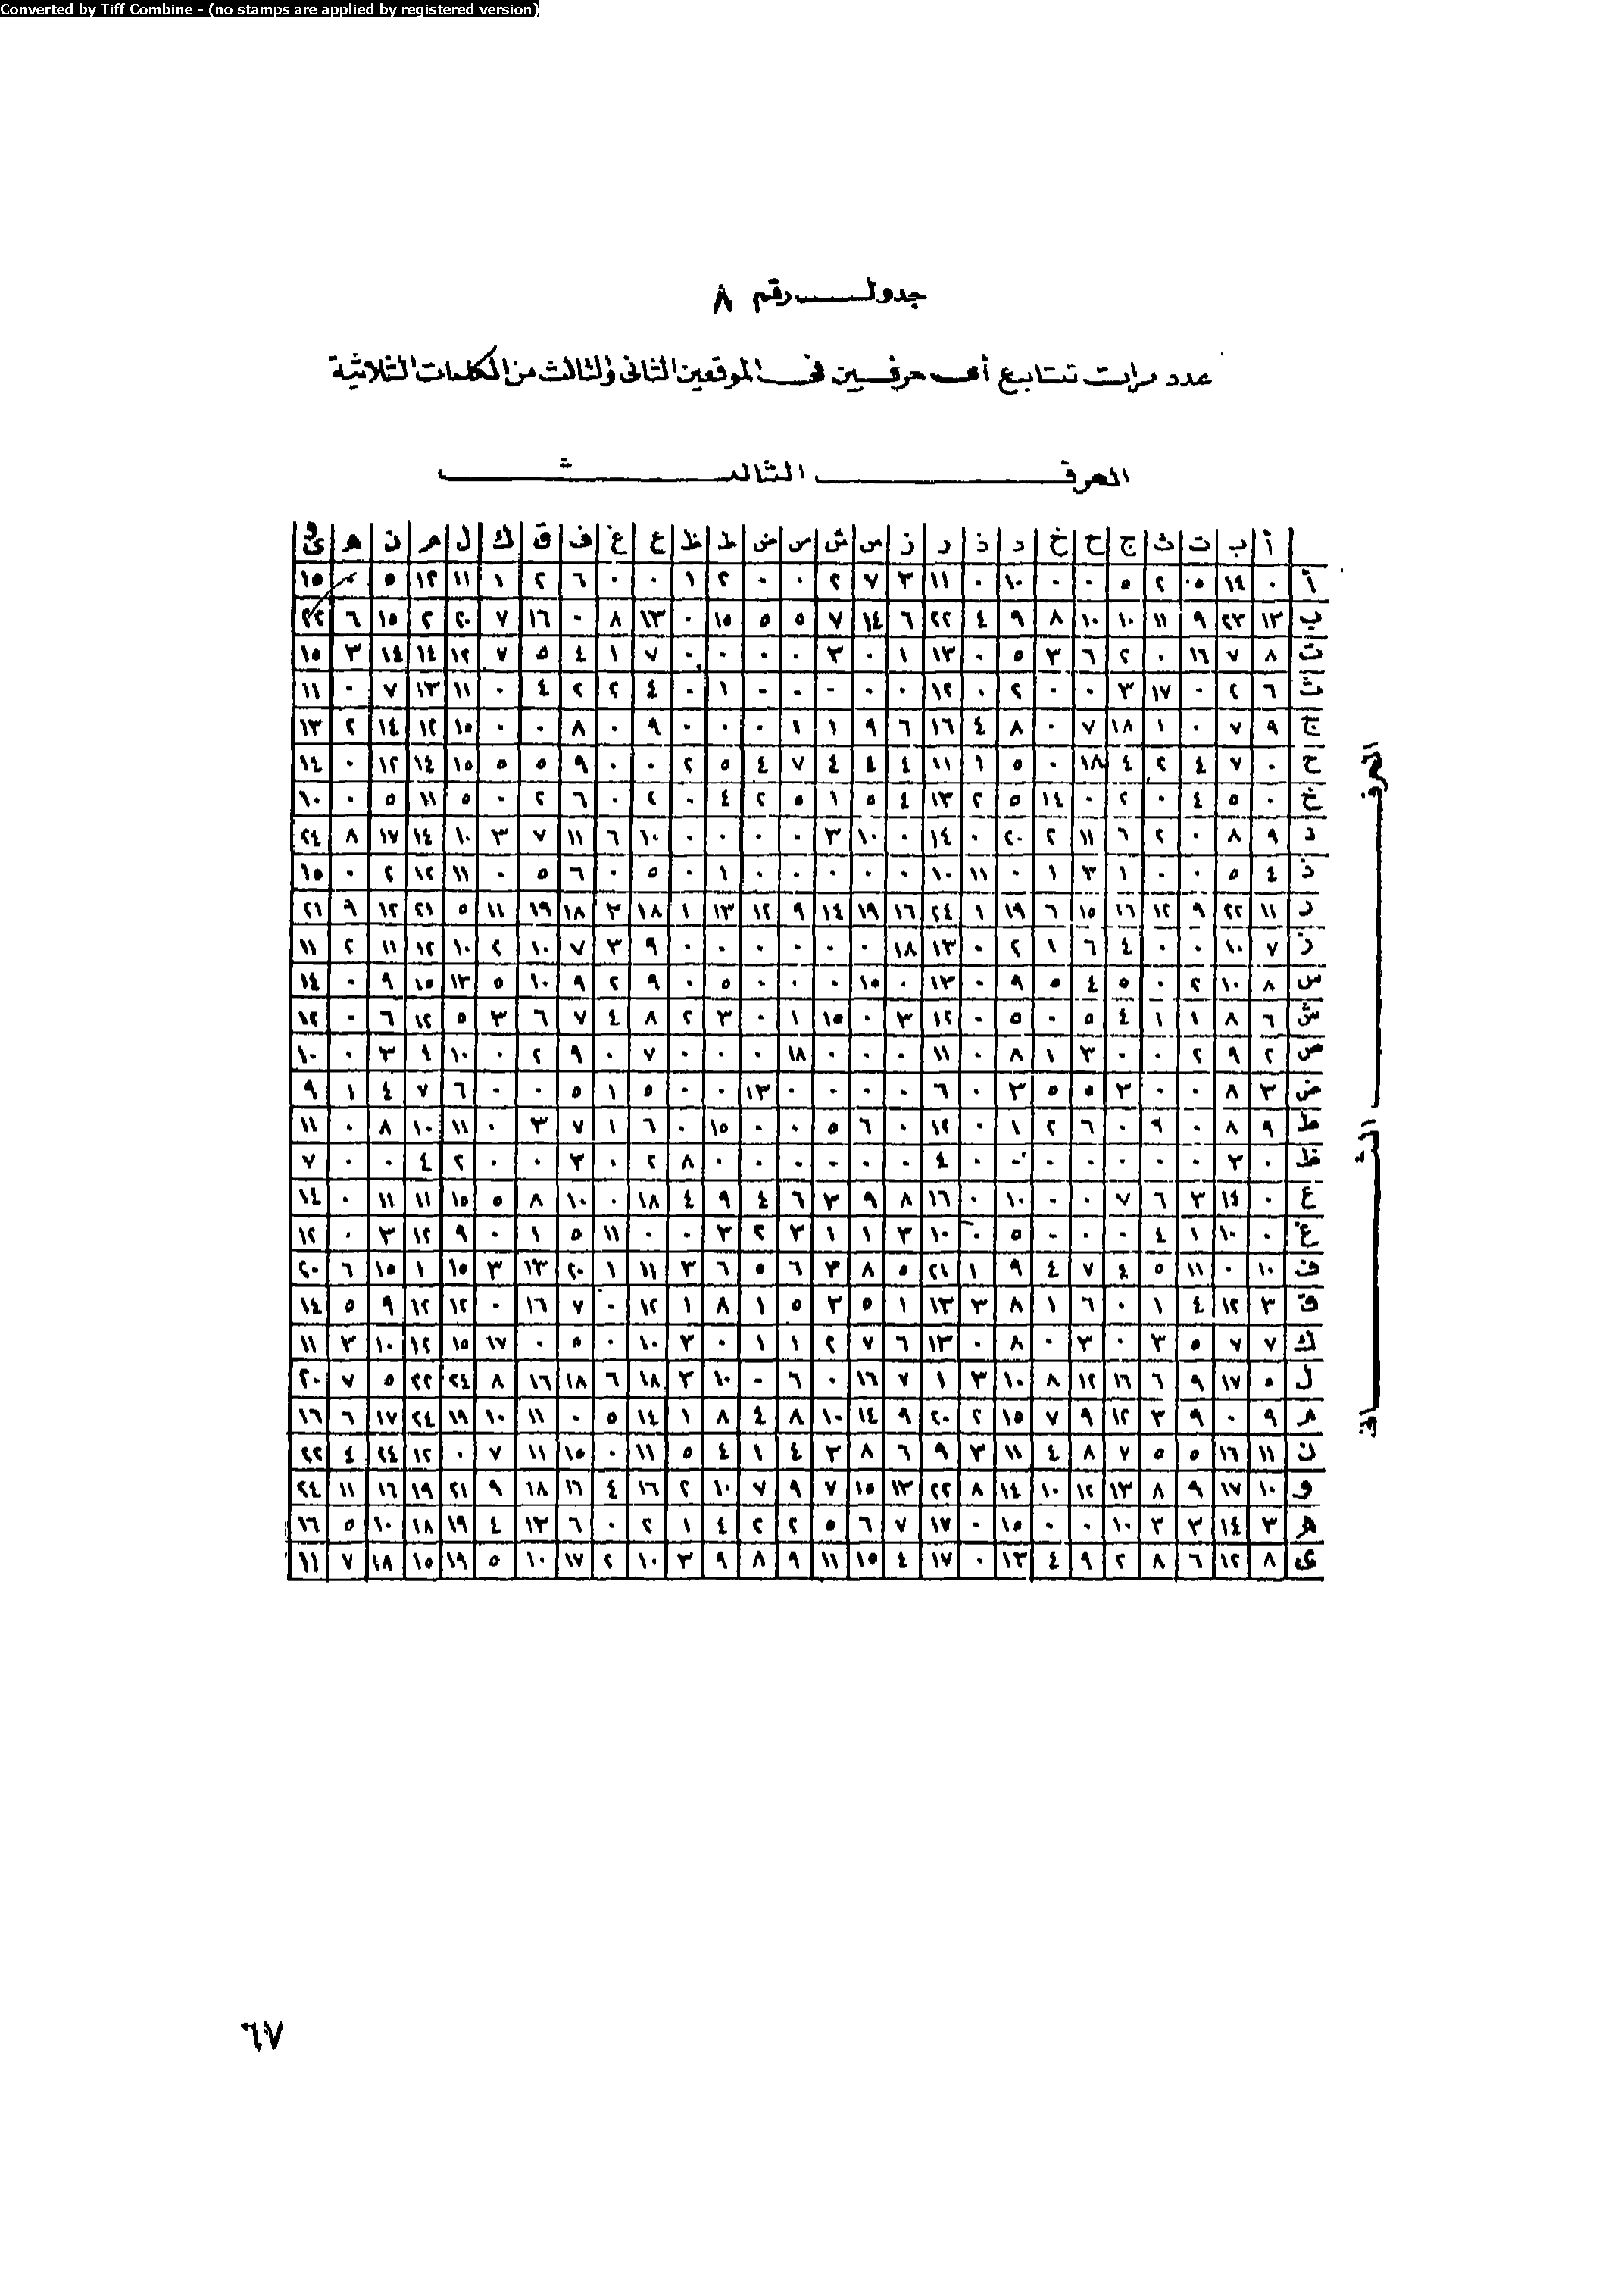 Converted by Tiff Combine - (no stamps are applied by registered version)
جدول رقم ٨
عدد مرات تتابع أى حرفين فى الموقعين الثانى والثالث من الكلمات الثلاثية
الحرف الثالث
أ ب ت ث ج ح خ د ذ ر ز س ش ص ض ط ظ ع غ ف ق ك ل م ن ه و ى
أ ٠ ١٤ ٥ ٢ ٥ ٠ ٠ ١٠ ٠ ١١ ٣ ٧ ٢ ٠ ٠ ٢ ١ ٠ ٠ ٦ ٢ ١ ١١ ١٢ ٥ ١٥
ب ١٣ ٢٣ ٩ ١١ ١٠ ١٠ ٨ ٩ ٤ ٢٢ ٦ ١٤ ٧ ٥ ٥ ١٥ ٠ ١٣ ٨ ٠ ١٦ ٧ ٢٠ ٢ ١٥ ٦
ت ٨ ٧ ١٦ ٠ ٢ ٦ ٣ ٥ ٠ ١٣ ١ ٠ ٣ ٠ ٠ ٠ ٠ ٧ ١ ٤ ٥ ٧ ١٢ ١٤ ١٤ ٣ ١٥
ث ٦ ٢ ٠ ١٧ ٣ ٠ ٠ ٢ ٠ ١٢ ٠ ٠ ٠ ٠ ٠ ١ ٠ ٤ ٢ ٢ ٤ ٠ ١١ ١٣ ٧ ٠ ١١
ج ٩ ٧ ٠ ١ ١٨ ٧ ٠ ٨ ٤ ١٦ ٦ ٩ ١ ١ ٠ ٠ ٠ ٩ ٠ ٨ ٠ ٠ ١٠ ١٢ ١٤ ٢ ١٣
ح ٠ ٧ ٤ ٢ ٤ ١٨ ٠ ٥ ١ ١١ ٤ ٤ ٤ ٧ ٤ ٥ ٢ ٠ ٠ ٩ ٥ ٥ ١٥ ١٤ ١٢ ٠ ١٤
خ ٠ ٥ ٤ ٠ ٢ ٠ ١٤ ٥ ٢ ١٣ ٤ ٥ ١ ٥ ٢ ٤ ٠ ٤ ٠ ٦ ٢ ٠ ٥ ١١ ٥ ٠ ١٠
د ٩ ٨ ٠ ٢ ٦ ١١ ٢ ٢٠ ٠ ١٤ ٠ ١٠ ٣ ٠ ٠ ٠ ٠ ١٠ ٦ ١١ ٧ ٣ ١٠ ١٤ ١٧ ٨ ٢٤
ذ ٤ ٥ ٠ ٠ ١ ٣ ١ ٠ ١١ ١٠ ٠ ٠ ٠ ٠ ٠ ١ ٠ ٥ ٠ ٦ ٥ ٠ ١١ ١٢ ٢ ٠ ١٥
ر ١١ ٢٢ ٩ ١٢ ١٦ ١٥ ٦ ١٩ ١ ٢٤ ١٦ ١٩ ١٤ ٩ ١٢ ١٣ ١ ١٨ ٣ ١٨ ١٩ ١١ ٥ ٢١ ١٢ ٩ ٢١
ز ٧ ١٠ ٠ ٠ ٤ ٦ ١ ٢ ٠ ١٣ ١٨ ٠ ٠ ٠ ٠ ٠ ٠ ٩ ٣ ٧ ١٠ ٢ ١٠ ١٢ ١١ ٢ ١١
س ٨ ١٠ ٢ ٠ ٥ ٤ ٥ ٩ ٠ ١٣ ٠ ١٥ ٠ ٠ ٠ ٥ ٠ ٩ ٢ ٩ ١٠ ٥ ١٣ ١٥ ٩ ٠ ١٤
ش ٦ ٨ ١ ١ ٤ ٥ ٠ ٥ ٠ ١٢ ٣ ٠ ١٥ ١ ٠ ٣ ٢ ٨ ٤ ٧ ٦ ٣ ٥ ١٢ ٦ ٠ ١٢
ص ٢ ٩ ٢ ٠ ٠ ٣ ١ ٨ ٠ ١١ ٠ ٠ ٠ ١٨ ٠ ٠ ٠ ٧ ٠ ٩ ٢ ٠ ١٠ ٩ ٣ ٠ ١٠
ض ٣ ٨ ٠ ٠ ٣ ٥ ٥ ٣ ٠ ٦ ٠ ٠ ٠ ٠ ١٣ ٠ ٠ ٥ ١ ٥ ٠ ٠ ٦ ٧ ٤ ١ ٩
ط ٩ ٨ ٠ ٩ ٠ ٦ ٢ ١ ٠ ١٢ ٠ ٦ ٥ ٠ ٠ ١٥ ٠ ٦ ١ ٧ ٣ ٠ ١١ ١٠ ٨ ٠ ١١
ظ ٠ ٣ ٠ ٠ ٠ ٠ ٠ ٠ ٠ ٤ ٠ ٠ ٠ ٠ ٠ ٠ ٨ ٢ ٠ ٣ ٠ ٠ ٢ ٤ ٠ ٠ ٧
ع ٠ ١٤ ٣ ٦ ٧ ٠ ٠ ١٠ ٠ ١٦ ٨ ٩ ٣ ٦ ٤ ٩ ٤ ١٨ ٠ ١٠ ٨ ٥ ١٥ ١١ ١١ ٠ ١٤
غ ٠ ١٠ ١ ٤ ٠ ٠ ٠ ٥ ٠ ١٠ ٣ ١ ١ ٣ ٢ ٣ ٠ ٠ ١١ ٥ ١ ٠ ٩ ١٢ ٣ ٠ ١٢
ف ١٠ ٠ ١١ ٥ ٤ ٧ ٤ ٩ ١ ٢١ ٥ ٨ ٣ ٦ ٥ ٦ ٣ ١١ ١ ٢٠ ١٣ ٣ ١٥ ١ ١٥ ٦ ٢٠
ق ٣ ١٢ ٤ ١ ٠ ٦ ١ ٨ ٣ ١٣ ١ ٥ ٣ ٥ ١ ٨ ١ ١٢ ٠ ٧ ١٦ ٠ ١٢ ١٢ ٩ ٥ ١٤
ك ٧ ٧ ٥ ٣ ٠ ٣ ٠ ٨ ٠ ١٣ ٦ ٧ ٢ ١ ١ ٠ ٣ ١٠ ٠ ٥ ٠ ١٧ ١٥ ١٢ ١٠ ٣ ١١
ل ٥ ١٧ ٩ ٦ ١٦ ١٢ ٨ ١٠ ٣ ١ ٧ ١٦ ٠ ٦ ٠ ١٠ ٣ ١٨ ٦ ١٨ ١٦ ٨ ٢٤ ٢٢ ٥ ٧ ٢٠
م ٩ ٠ ٩ ٣ ١٢ ٩ ٧ ١٥ ٢ ٢٠ ٩ ١٤ ١٠ ٨ ٤ ٨ ١ ١٤ ٥ ٠ ١١ ١٠ ١٩ ٢٤ ١٧ ٦ ١٦
ن ١١ ١٦ ٥ ٥ ٧ ٨ ٤ ١١ ٣ ٩ ٦ ٨ ٣ ٤ ١ ٤ ٥ ١١ ٠ ١٥ ١١ ٧ ٠ ١٢ ٢٤ ٤ ٢٢
و ١٠ ١٧ ٩ ٨ ١٣ ١٢ ١٠ ١٤ ٨ ٢٢ ١٣ ١٥ ٧ ٩ ٧ ١٠ ٢ ١٦ ٤ ١٦ ١٨ ٩ ٢١ ١٩ ١٦ ١١ ٢٤
ه ٣ ١٤ ٣ ٣ ١٠ ٠ ٠ ١٥ ٠ ١٧ ٧ ٦ ٥ ٢ ٢ ٤ ١ ٢ ٠ ٦ ١٣ ٤ ١٩ ١٨ ١٠ ٥ ١٦
ى ٨ ١٢ ٦ ٨ ٢ ٩ ٤ ١٣ ٠ ١٧ ٤ ١٥ ١١ ٩ ٨ ٩ ٣ ١٠ ٢ ١٧ ١٠ ٥ ١٩ ١٥ ١٨ ٧ ١١
الحرف الثانى
٦٧